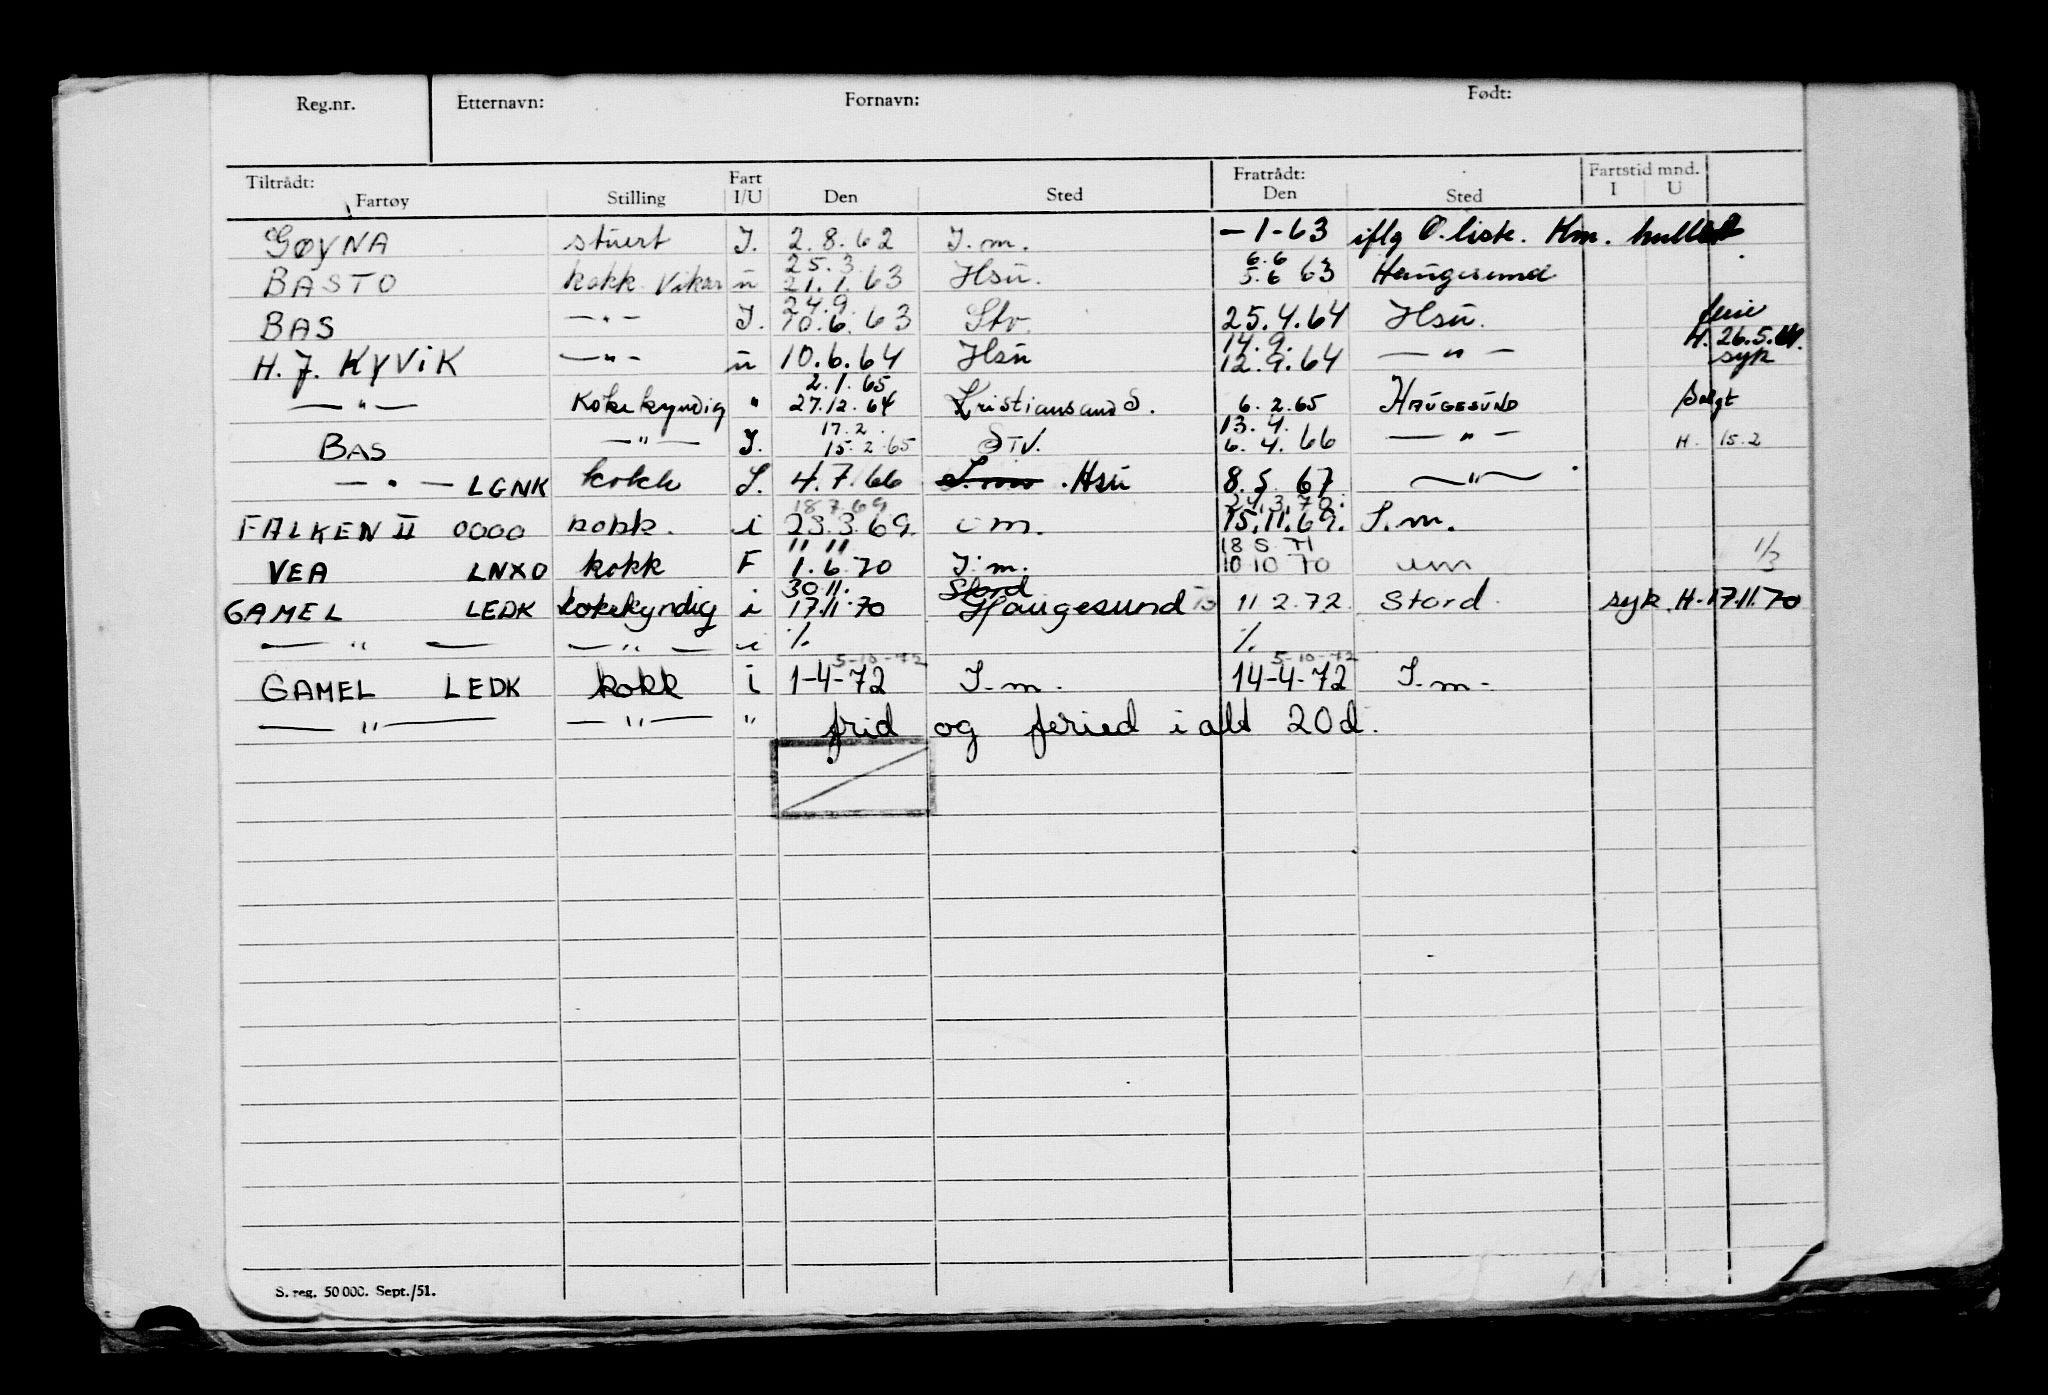 Reg.nr. Etternavn: Fornavn: Født:
Tiltrådt: Fart Fratrådt: Fartstid mnd.
Fartøy Stilling I/U Den Sted Den Sted I U
GØYNA stuert I. 2.8.62 I.m. -1-63 iflg O.liste. Km. hullet
25.3. 6.6
BASTO kokk Vikar u 21.1.63 Hsu. 5.6 63 Haugesund
24.9. ferie
BAS —"— I. 10.6.63 Stv. 25.4.64 Hsu. H. 26.5.64.
14.9. syk
H. J. KYVIK —"— u 10.6.64 Hsu 12.9.64 —"—
2.1.65
—"— Kokekyndig " 27.12.64 Kristiansand S. 6.2.65 HAUGESUND Solgt
17.2. 13.4.
BAS —"— I. 15.2.65 STV. 6.4.66 —"— H. 15.2
—"— LGNK kokk I. 4.7.66 Hsu 8.5.67 —"—
18.7.69 24.3.70.
FALKEN II OOOO kokk. i 23.3.69. I m. 15.11.69. I.m.
" " 18 5 71
VEA LNXO kokk F 1.6.70 I.m. 10 10 70 um 1/3
30.11. Stord
GAMEL LEDK kokekyndig i 17.11.70 Haugesund 11 2.72. Stord. syk H.17.11.70
—"— —"— i %. %.
5-10-72 5-10-72
GAMEL LEDK kokk i 1-4-72 I.m. 14-4-72 I.m.
—"— —"— " frid og feried i alt 20d.
S. reg. 50 000. Sept./51.